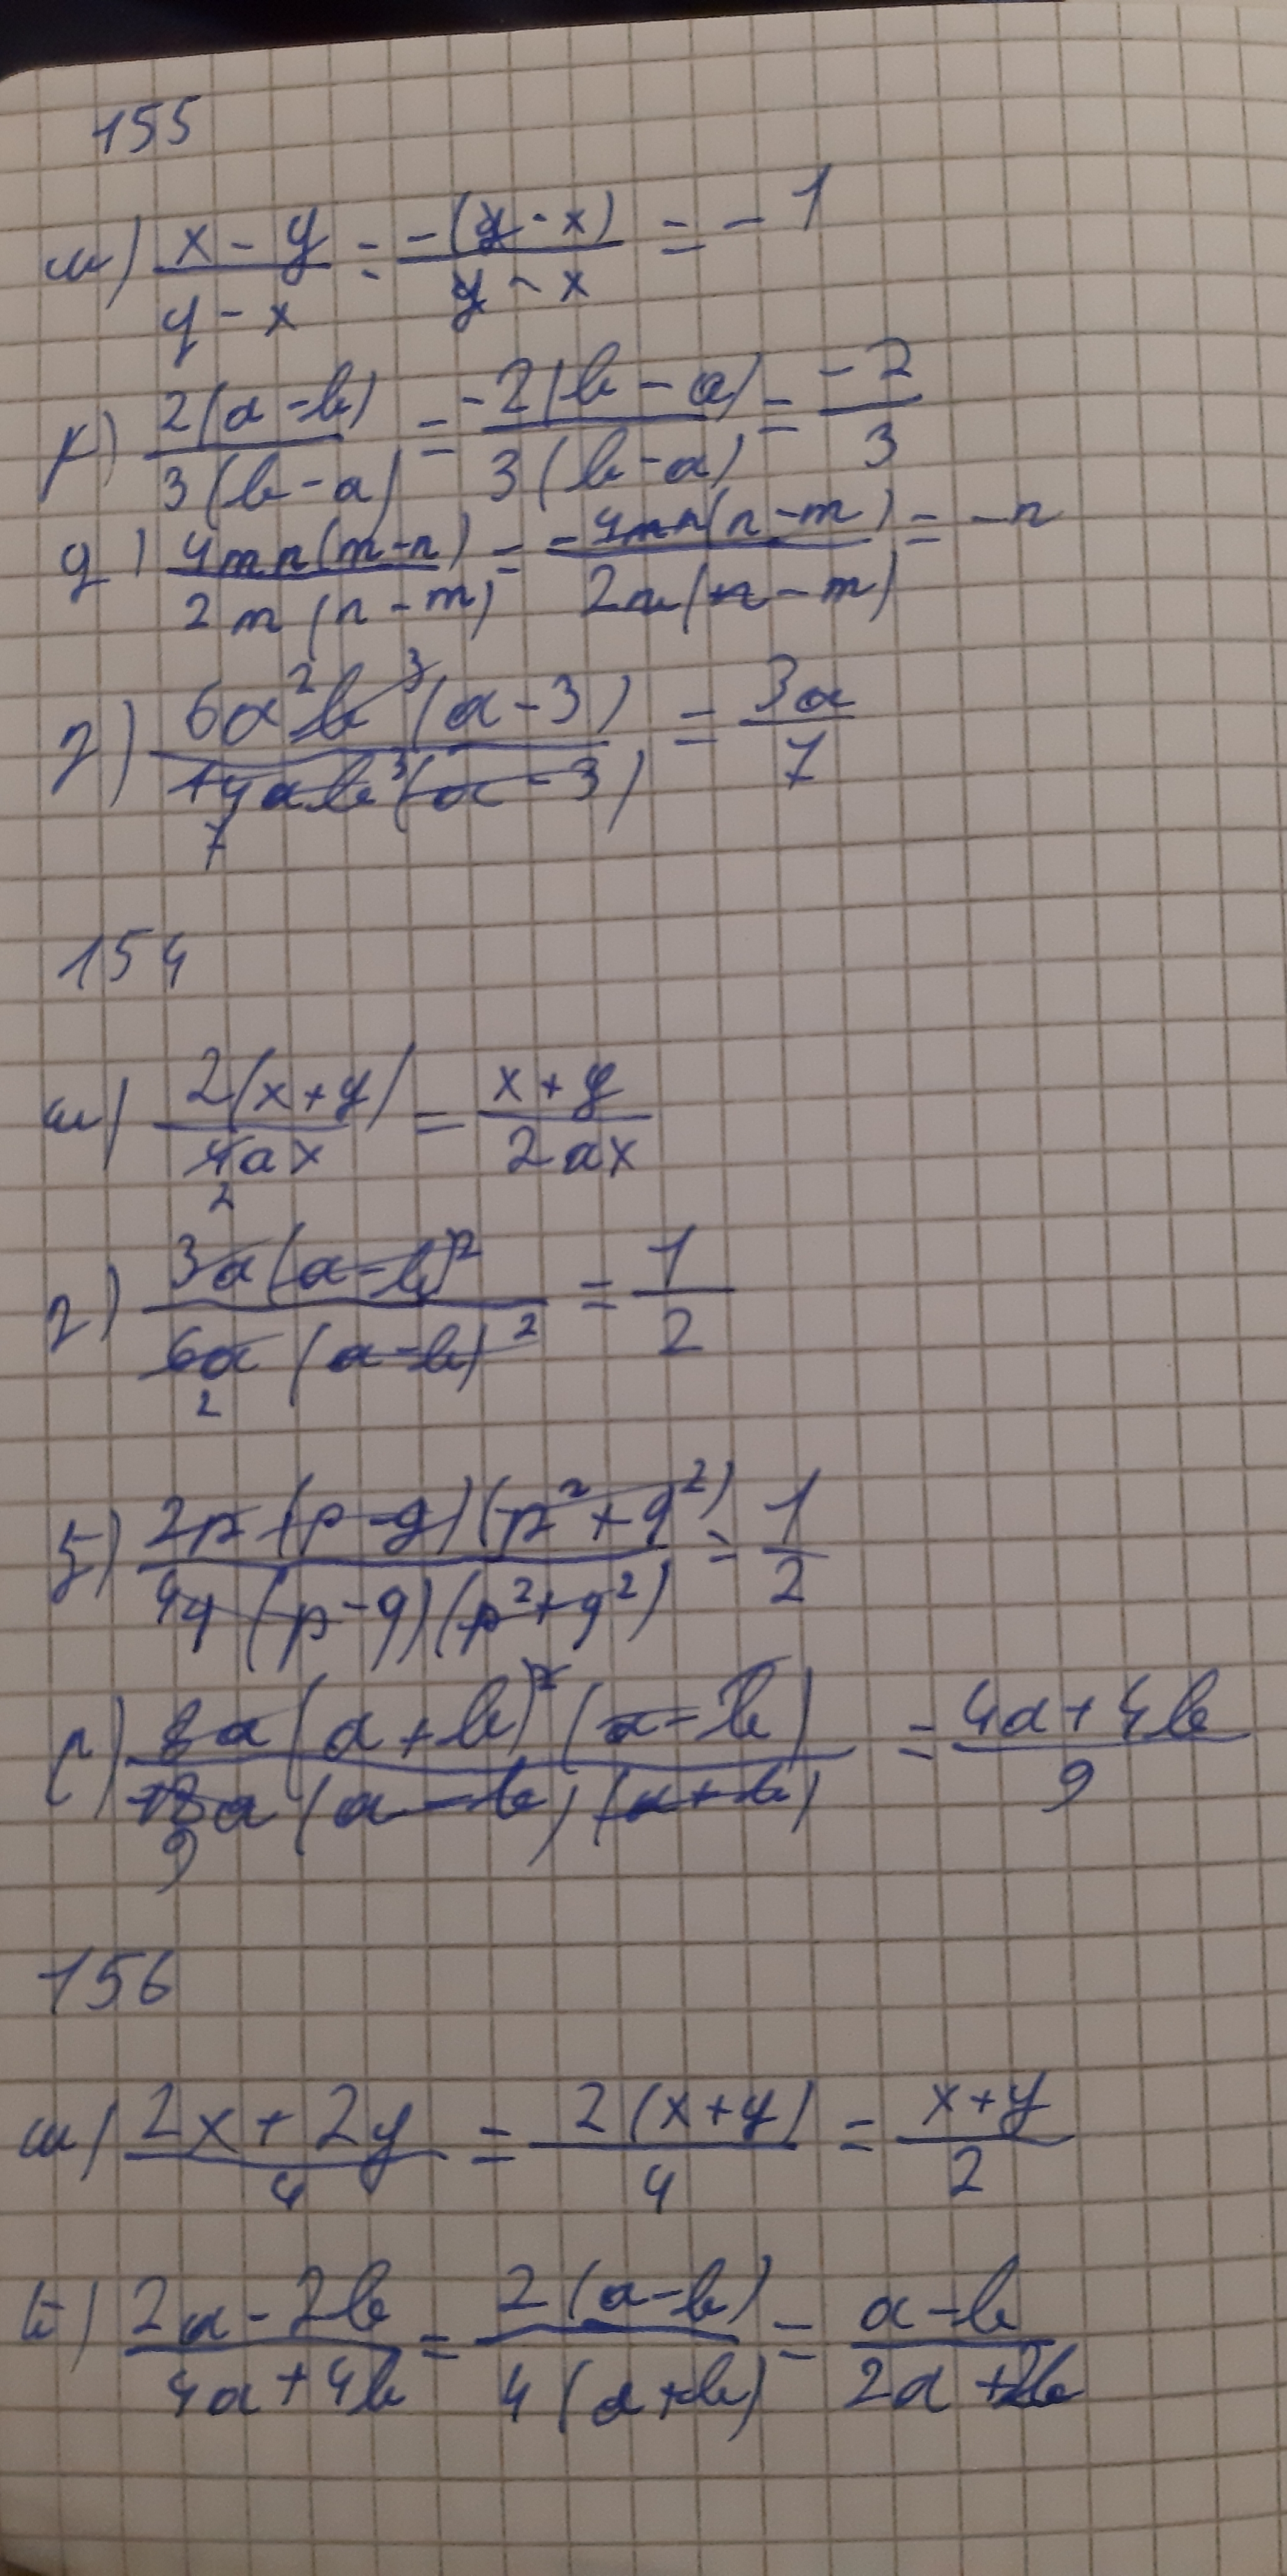 155
а) x - y / y - x = -(y - x) / y - x = -1
г) 2(a - b) / 3(b - a) = -2(b - a) / 3(b - a) = -2 / 3
g) 4mn(m - n) / 2m(n - m) = -4mn(n - m) / 2m(n - m) = -n
з) 6a²b³(a - 3) / 14ab³(a - 3) 7 = 3a / 7
154
а) 2(x + y) / 4ax 2 = x + y / 2ax
г) 3a(a - b)² / 6a(a - b)² 2 = 1 / 2
2p(p - q)(p² + q²) / 4q(p - q)(p² + q²) = 1 / 2
8a(a + b)²(a - b) / 18a(a - b)(a + b) 9 = 4a + 4b / 9
156
а) 2x + 2y / 4 = 2(x + y) / 4 = x + y / 2
2a - 2b / 4a + 4b = 2(a - b) / 4(a + b) = a - b / 2a + 2b